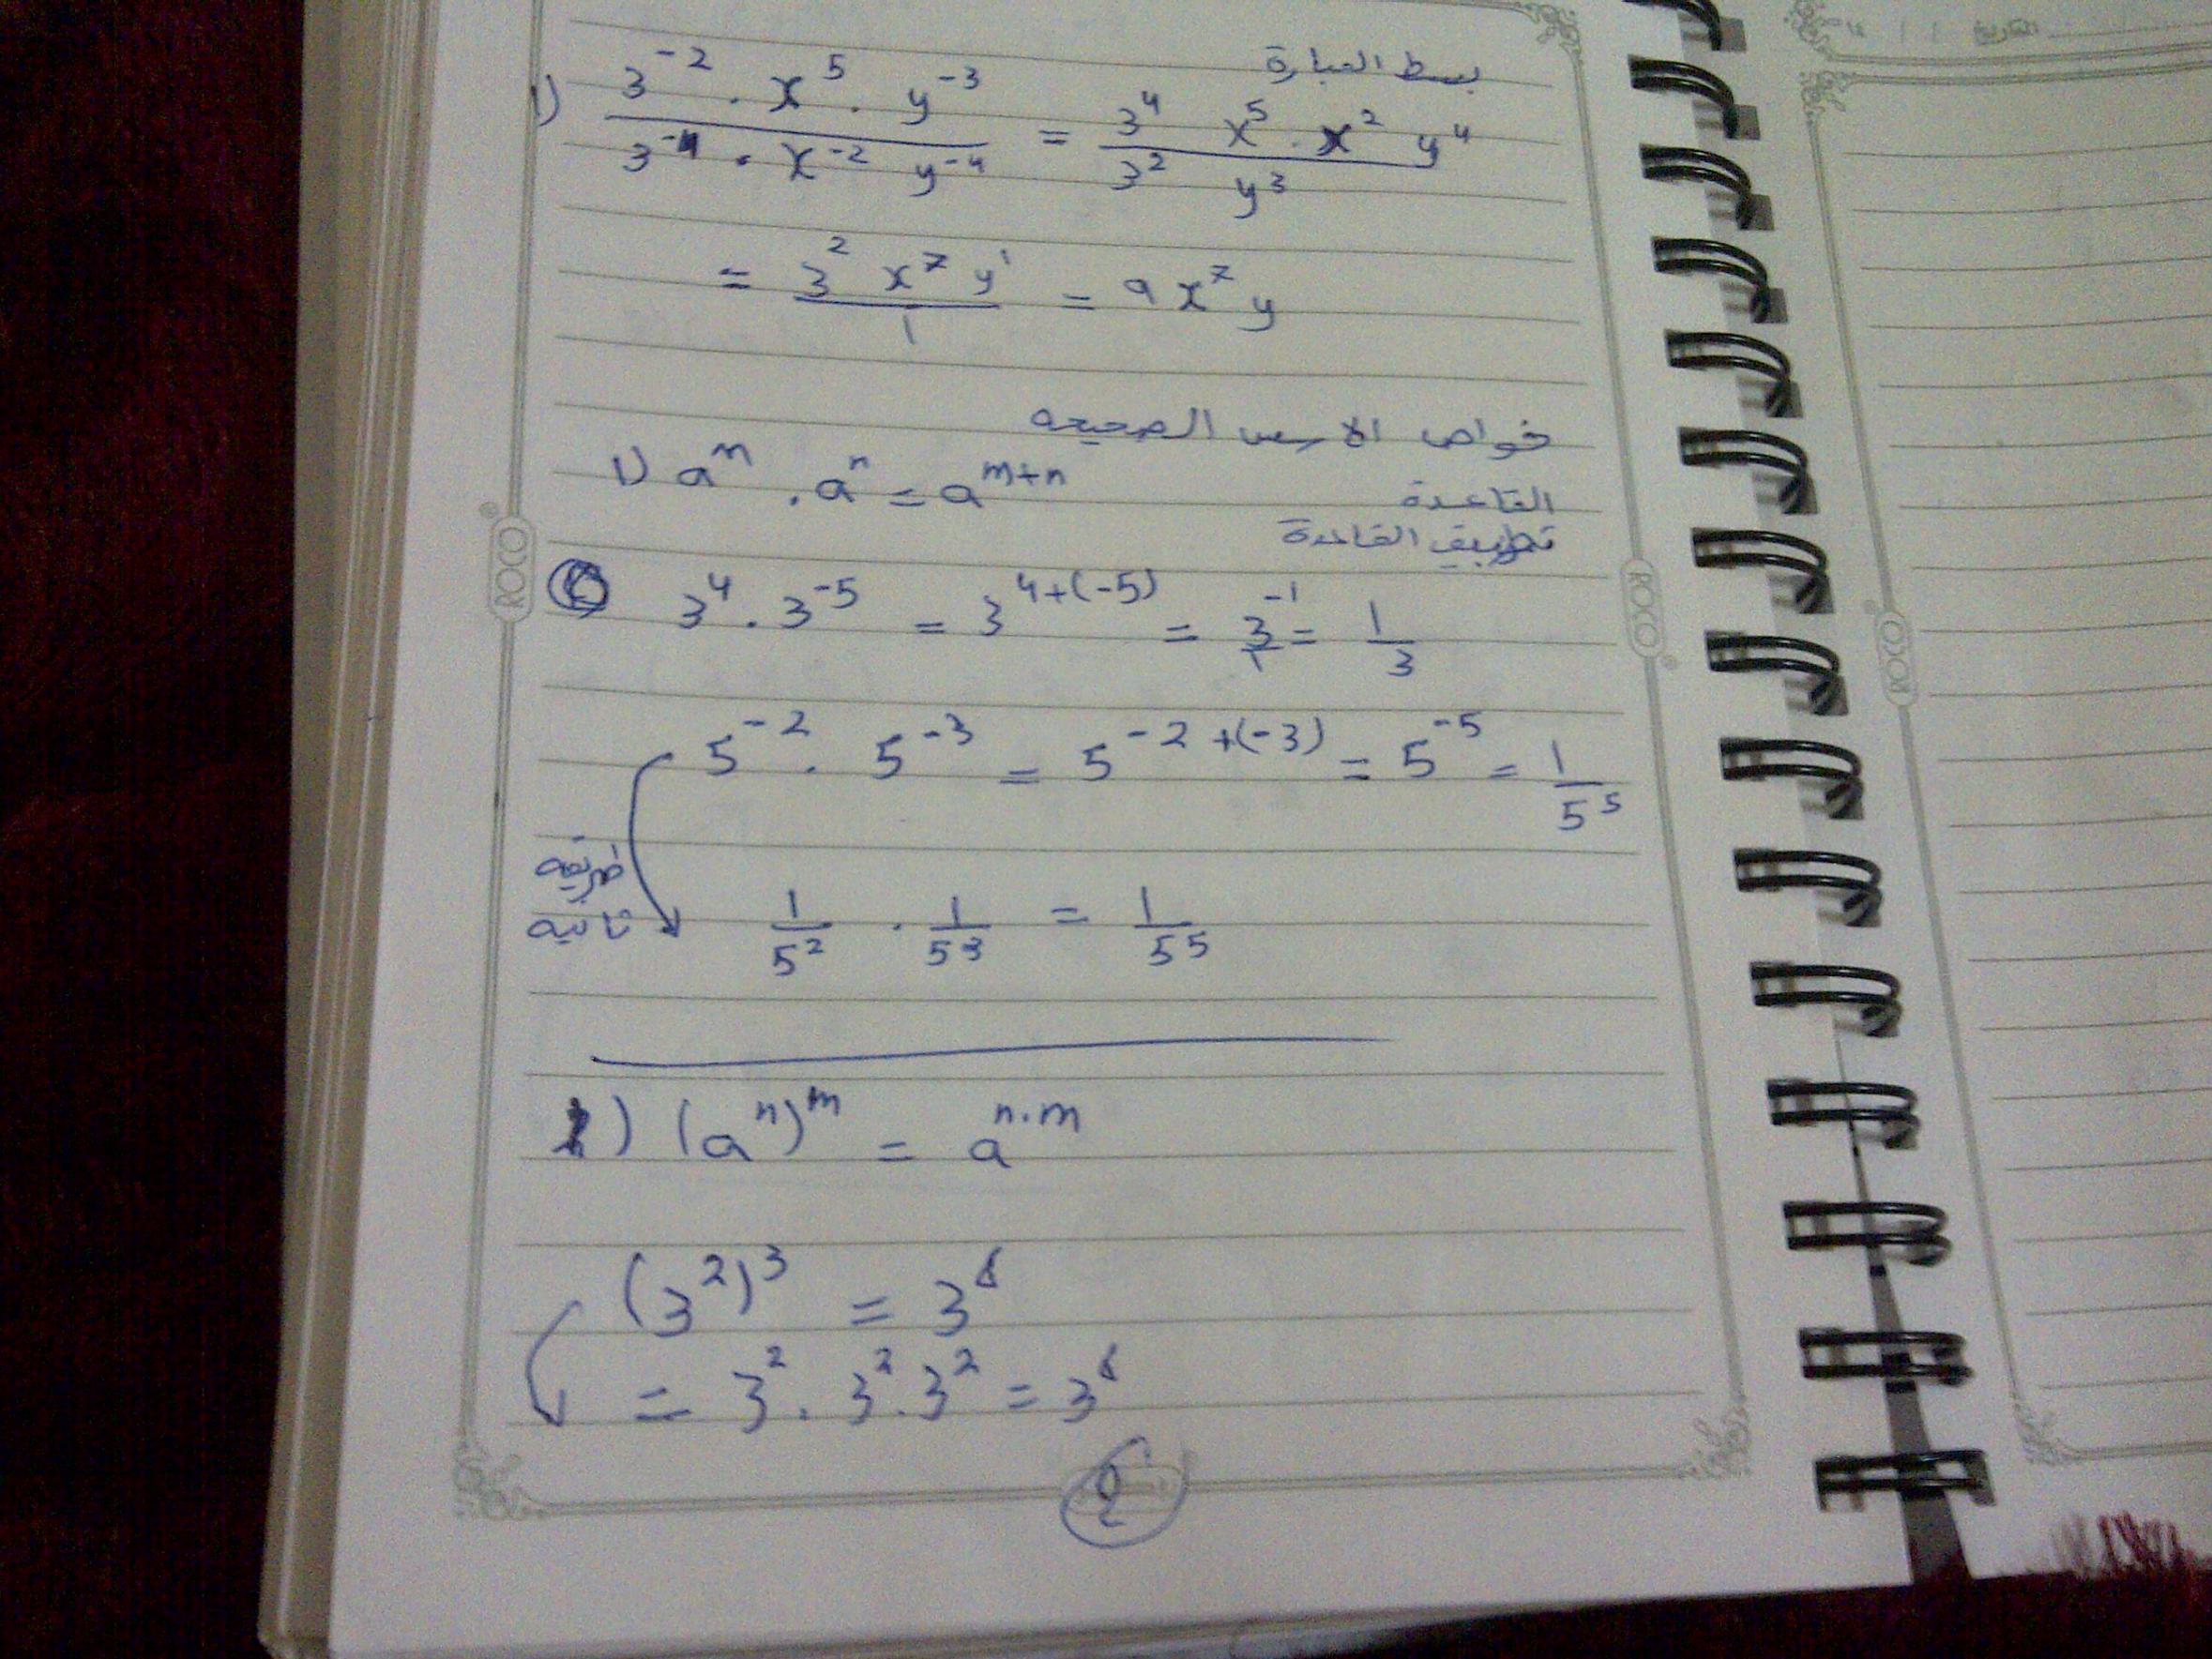 بسط العبارة
1) (3^-2 . x^5 . y^-3)/(3^-4 . x^-2 y^-4) = (3^4 x^5 . x^2 y^4)/(3^2 y^3)
= (3^2 x^7 y^1)/1 = 9 x^7 y
خواص الاسس الصحيحه
القاعدة
1) a^m . a^n = a^(m+n)
تطبيق القاعدة
3^4 . 3^-5 = 3^(4+(-5)) = 3^-1/1 = 1/3
5^-2 . 5^-3 = 5^(-2+(-3)) = 5^-5 = 1/5^5
طريقه
ثانيه
1/5^2 . 1/5^3 = 1/5^5
2) (a^n)^m = a^(n.m)
(3^2)^3 = 3^6
= 3^2 . 3^2 . 3^2 = 3^6
ROCO
ROCO
ROCO
التاريخ / /